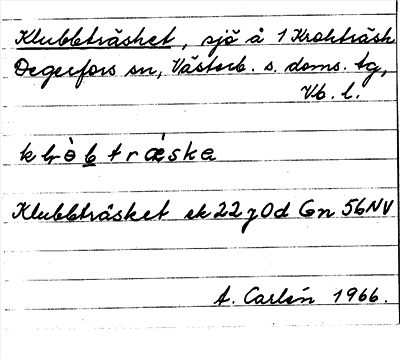 Klubbträsket, sjö å 1 Krokträsk
Degerfors sn, Västerb. s. doms. tg,
Vb. l.
Klubbträsket ek 22 J 0d Gn 56 NV
A. Carlén 1966.